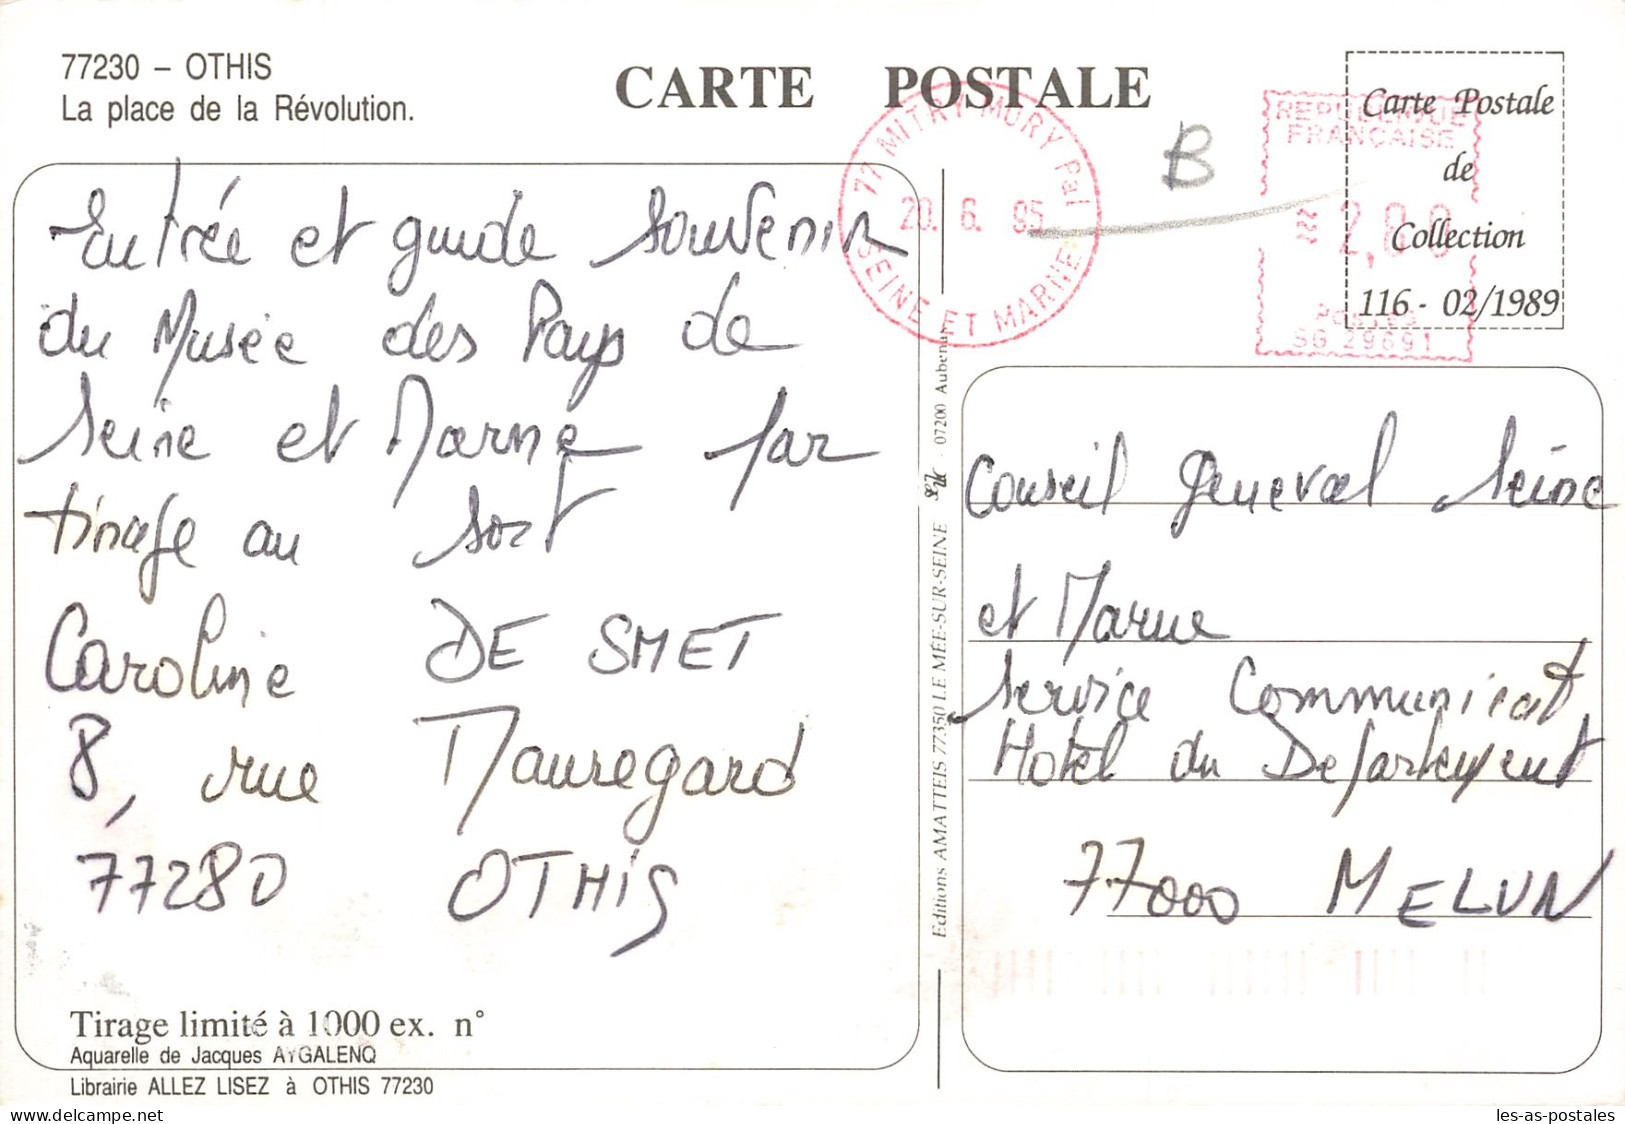 77230 – OTHIS
La place de la Révolution.
CARTE POSTALE
77 MITRY MORY Pal
20. 6. 95
SEINE ET MARNE
B
REPUBLIQUE
FRANÇAISE
2,80
POSTES
SG 29691
Carte Postale
de
Collection
116 - 02/1989
Entrée et guide souvenir
du Musée des Pays de
Seine et Marne par
tirage au sort
Caroline DE SMET
8, rue Mauregard
77280 OTHIS
Tirage limité à 1000 ex. n°
Aquarelle de Jacques AYGALENQ
Librairie ALLEZ LISEZ à OTHIS 77230
Editions AMATTEIS 77350 LE MÉE-SUR-SEINE - 07200 Aubenas
Conseil General Seine
et Marne
Service Communicat
Hotel du Departement
77000 MELUN
delcampe.net
les-as-postales